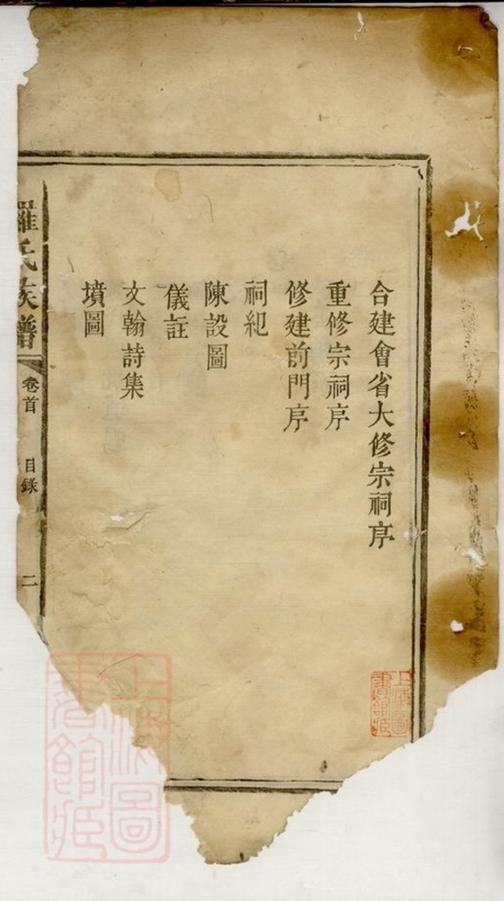 合建會省大修宗祠序
重修宗祠序
修建前門序
祠紀
陳設圖
儀註
文翰詩集
墳圖
羅氏族譜
卷首
目錄
二
上海圖書館藏
上海圖書館藏